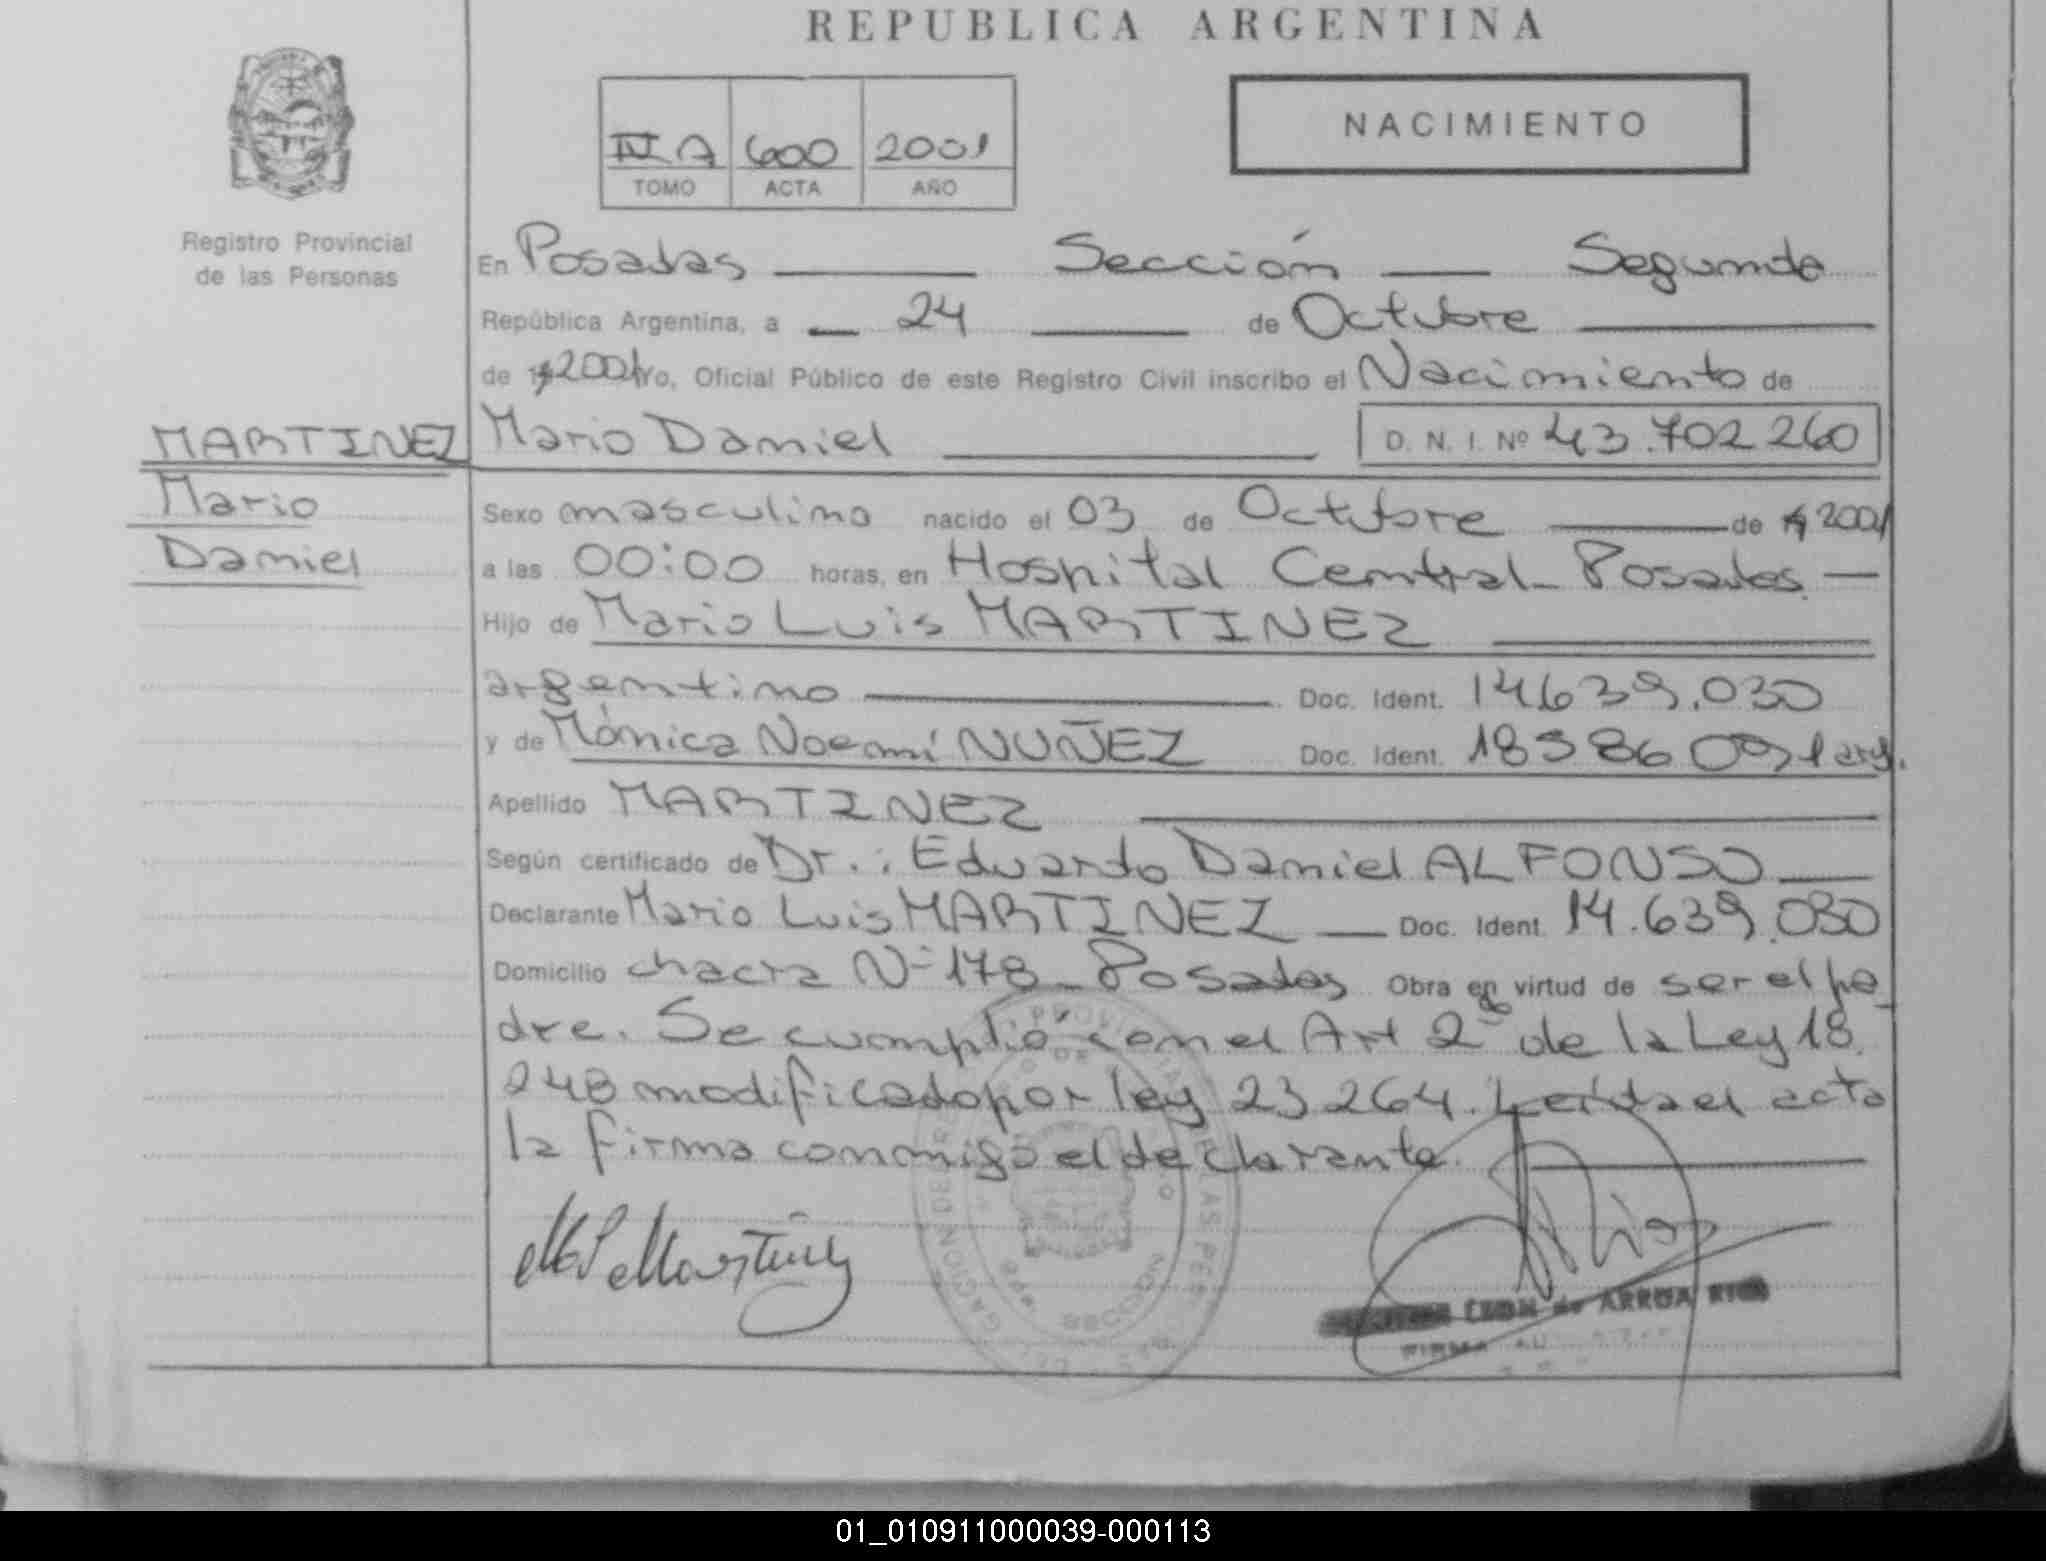 REPUBLICA ARGENTINA
NACIMIENTO
IV A 600 2001
TOMO ACTA AÑO
Registro Provincial
de las Personas
En Posadas Sección Segunda
República Argentina, a 24 de Octubre
de 2001 Yo, Oficial Público de este Registro Civil inscribo el Nacimiento de
MARTINEZ Mario Daniel D. N. I. Nº 43.702260
Mario
Daniel
Sexo masculino nacido el 03 de Octubre de 2001
a las 00:00 horas, en Hospital Central - Posadas
Hijo de Mario Luis MARTINEZ
argentino Doc. Ident. 14639.030
y de Mónica Noemí NUÑEZ Doc. Ident. arg.
Apellido MARTINEZ
Según certificado de Dr.: Eduardo Daniel ALFONSO
Declarante Mario Luis MARTINEZ Doc. Ident. 14.639.030
Domicilio chacra Nº 178 - Posadas Obra en virtud de ser el pa
dre. Se cumplió con el Art 2do de la Ley 18.
248 modificado por ley 23264. Leída el acta
la firma conmigo el declarante.
LEON de ARRUA RIOS
FIRMA
01_010911000039-000113